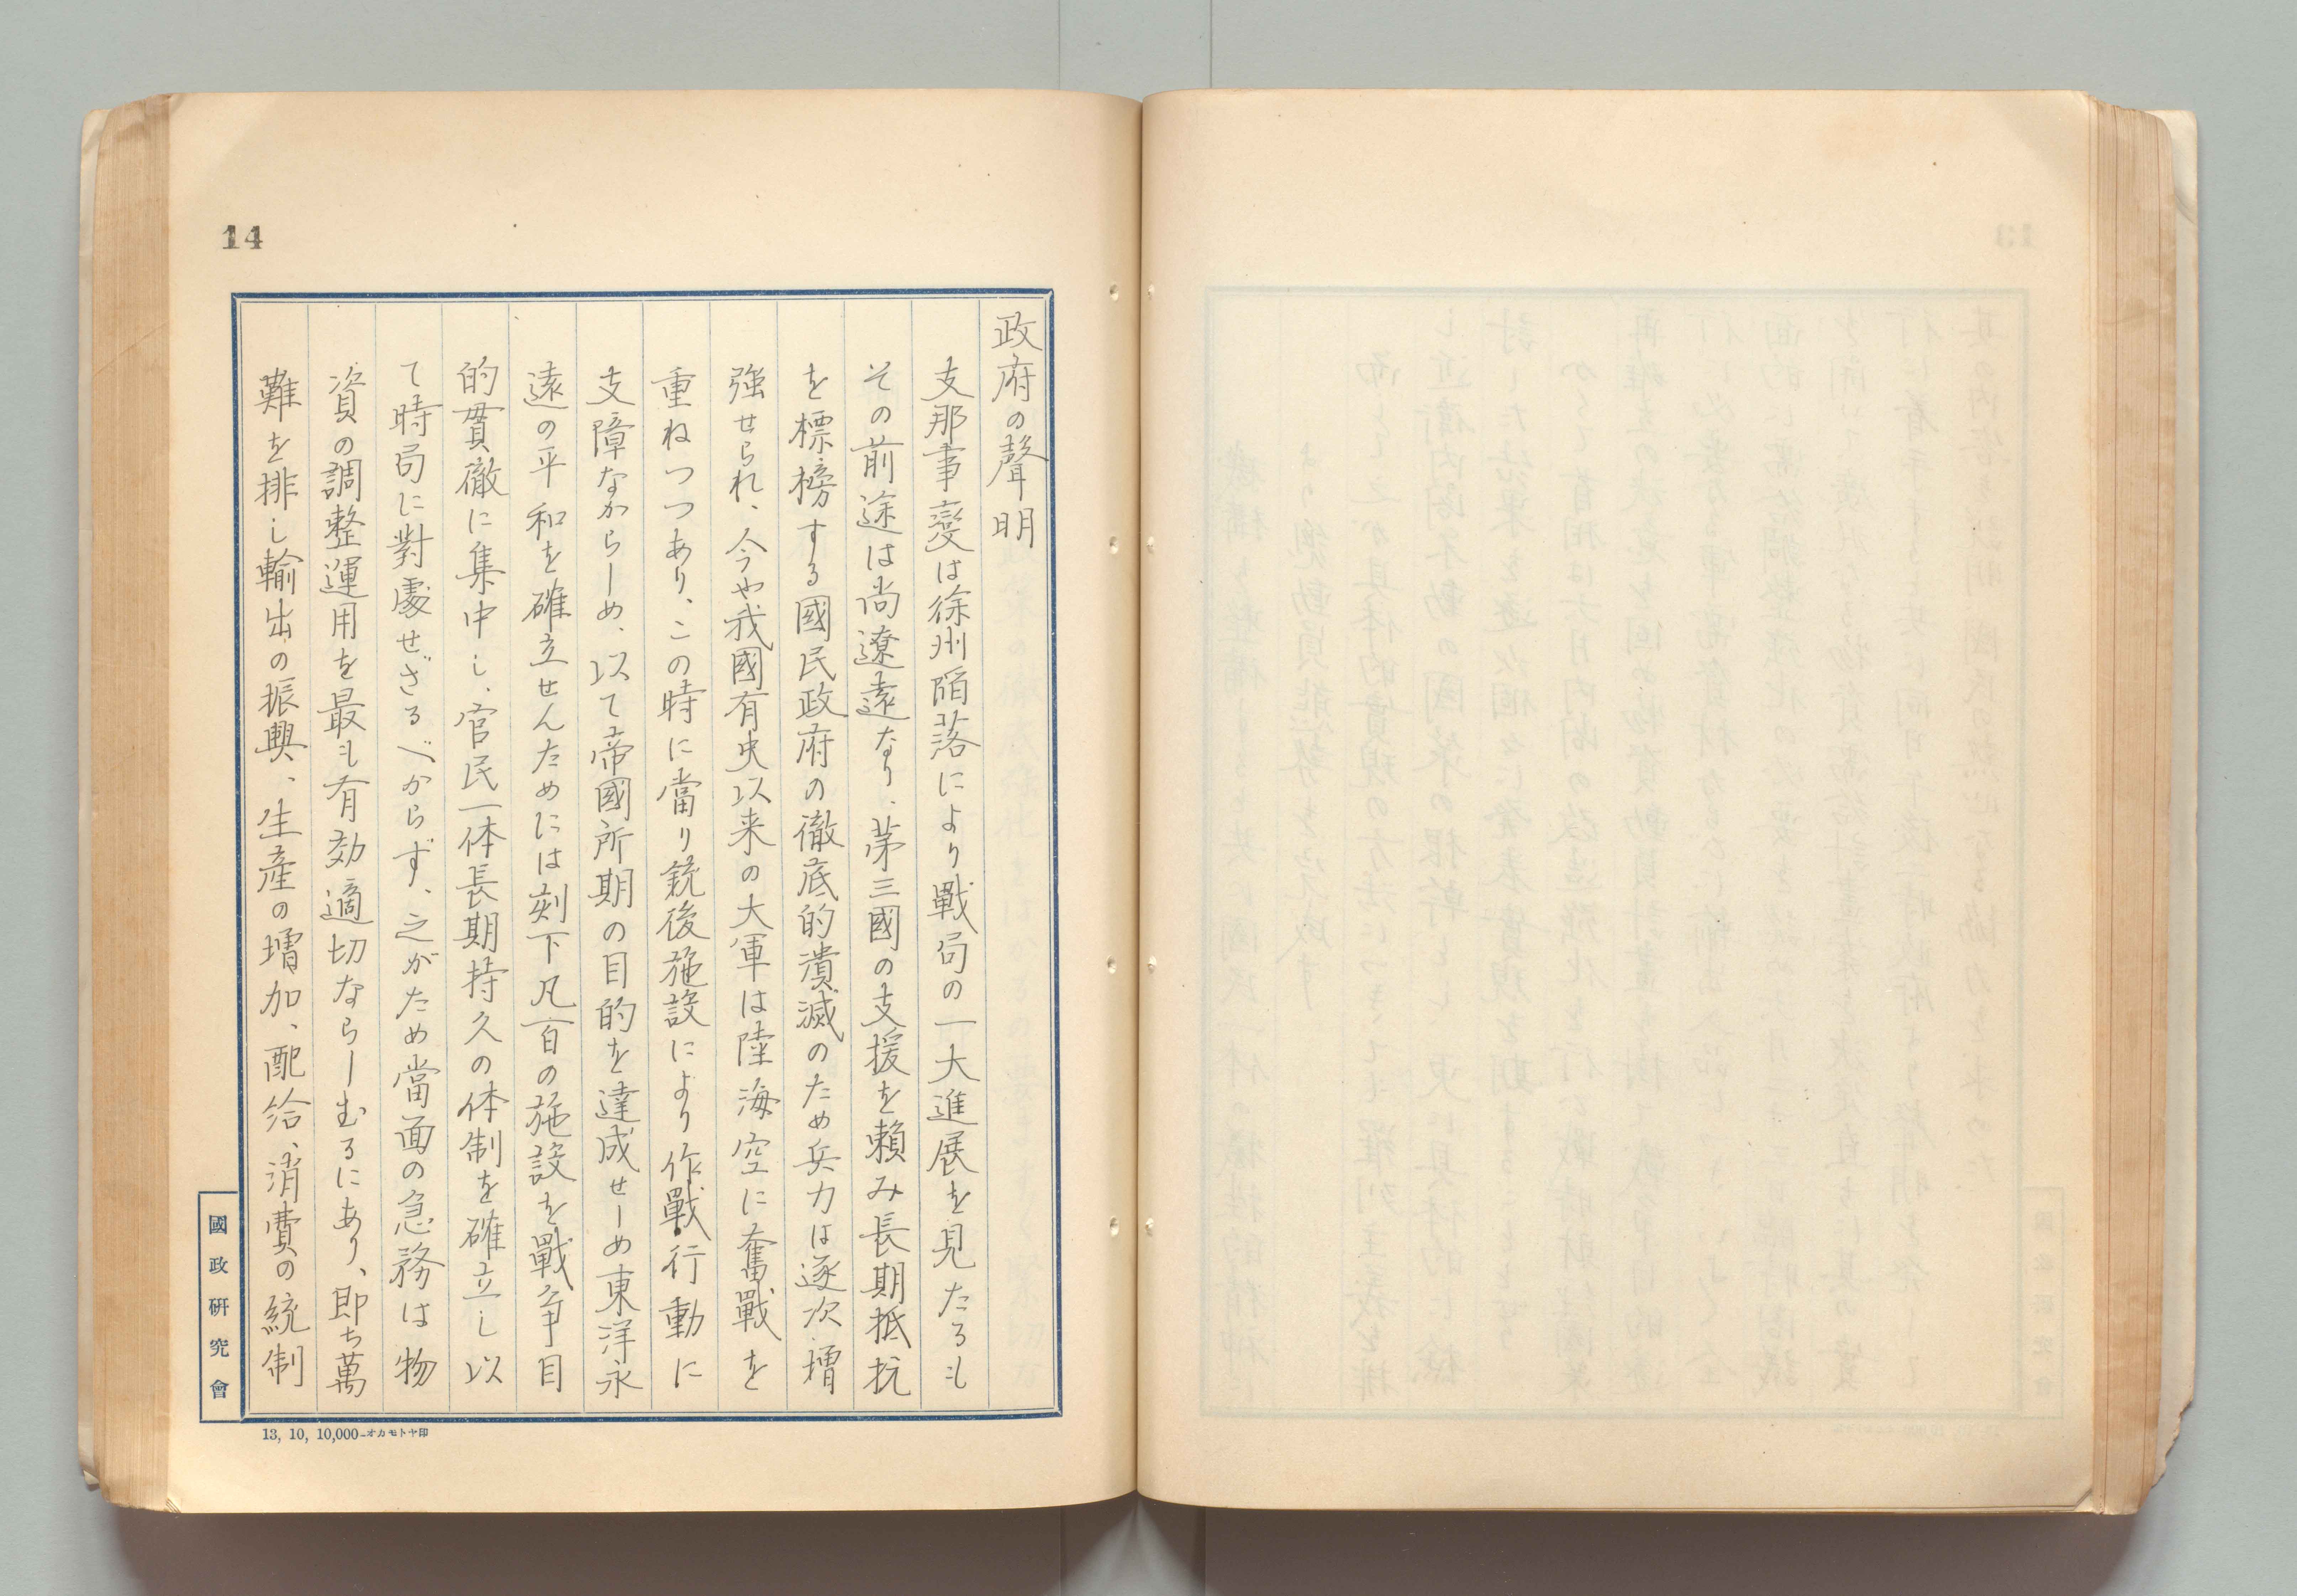 14
政府の聲明
支那事變は徐州陥落により戰局の一大進展を見たるも
その前途は尚遼遠なり、第三國の支援を賴み長期抵抗
を標榜する國民政府の徹底的潰滅のため兵力は逐次増
強せられ、今や我國有史以来の大軍は陸海空に奮戰を
重ねつつあり、この時に當り銃後施設により作戰行動に
支障なからしめ、以て帝國所期の目的を達成せしめ東洋永
遠の平和を確立せんためには刻下凡百の施設を戰爭目
的貫徹に集中し、官民一体長期持久の体制を確立し以
て時局に對處せざるべからず、之がため當面の急務は物
資の調整運用を最も有効適切ならしむるにあり、即ち萬
難を排し輸出の振興、生産の増加、配給、消費の統制
國政研究會
13, 10, 10,000—オカモトヤ印